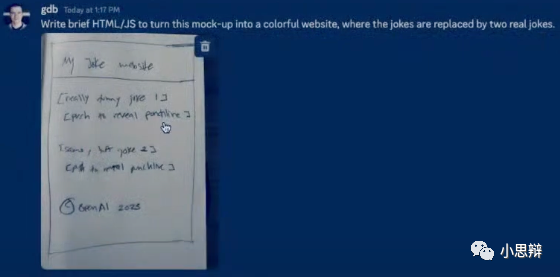 gdb Today at 1:17 PM
Write brief HTML/JS to turn this mock-up into a colorful website, where the jokes are replaced by two real jokes.
My Joke Website
[really funny joke 1]
[push to reveal punchline]
joke 2]
to reveal punchline]
© OpenAI 2023
小思辩